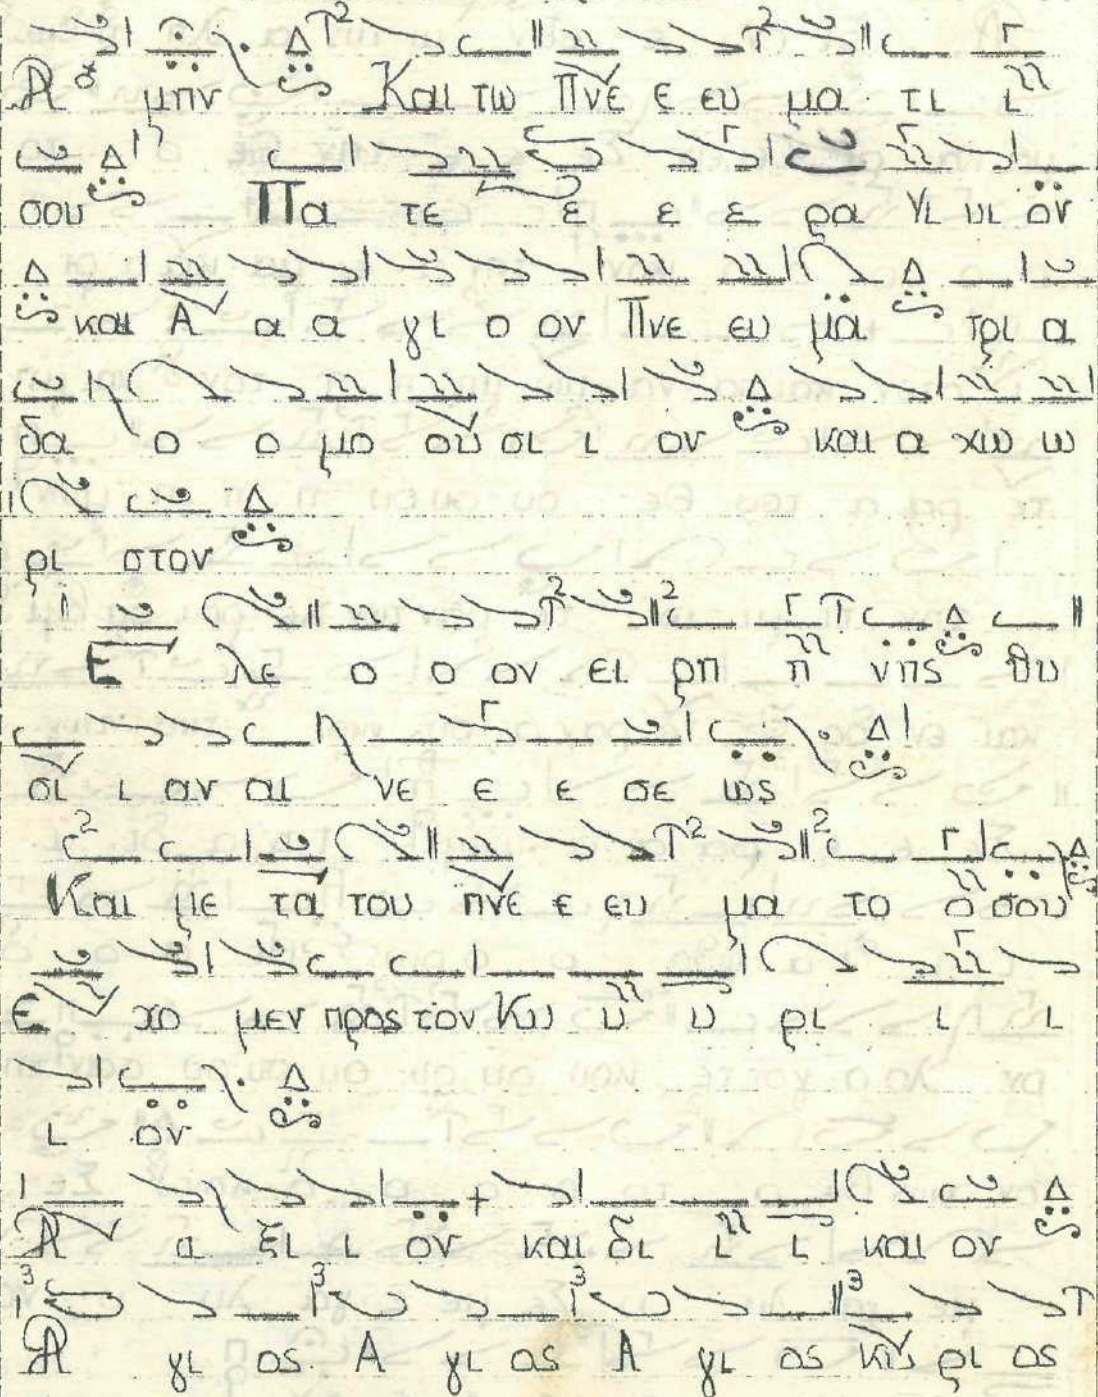 Α μην Και τω Πνε ε ευ μα τι ι
σου Πα τε ε ε ε ρα Υι υι ον
και Α α α γι ο ον Πνε ευ μα τρι α
δα ο ο μο ου σι ι ον και α χω ω
ρι στον
Ε λε ο ο ον ει ρη η νης θυ
σι ι αν αι νε ε ε σε ως
Και με τα του πνε ε ευ μα το ο σου
Ε χο μεν προς τον Κυ υ υ ρι ι ι
ι ον
Α α ξι ι ον και δι ι ι και ον
Α γι ος Α γι ος Α γι ος Κυ ρι ος